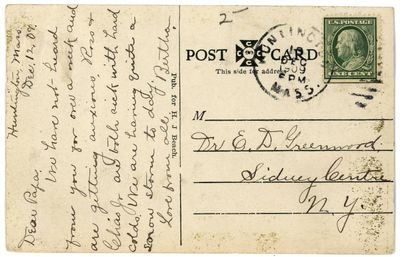 2-
Huntington, Mass.
Dec. 12, 09.
Dear Papa,
We have not heard
from you for over a week and
are getting anxious. Ross &
Chas Jr are both sick with hard
colds. We are having quite a
snow storm to-day.
Love from all,
Bertha.
Pub. for H. J. Beach.
POST CARD
This side for address.
HUNTINGTON
DEC
1909
PM
MASS.
U.S. POSTAGE
ONE CENT
M
Dr E. D. Greenwood
Sidney Centre
N. Y.